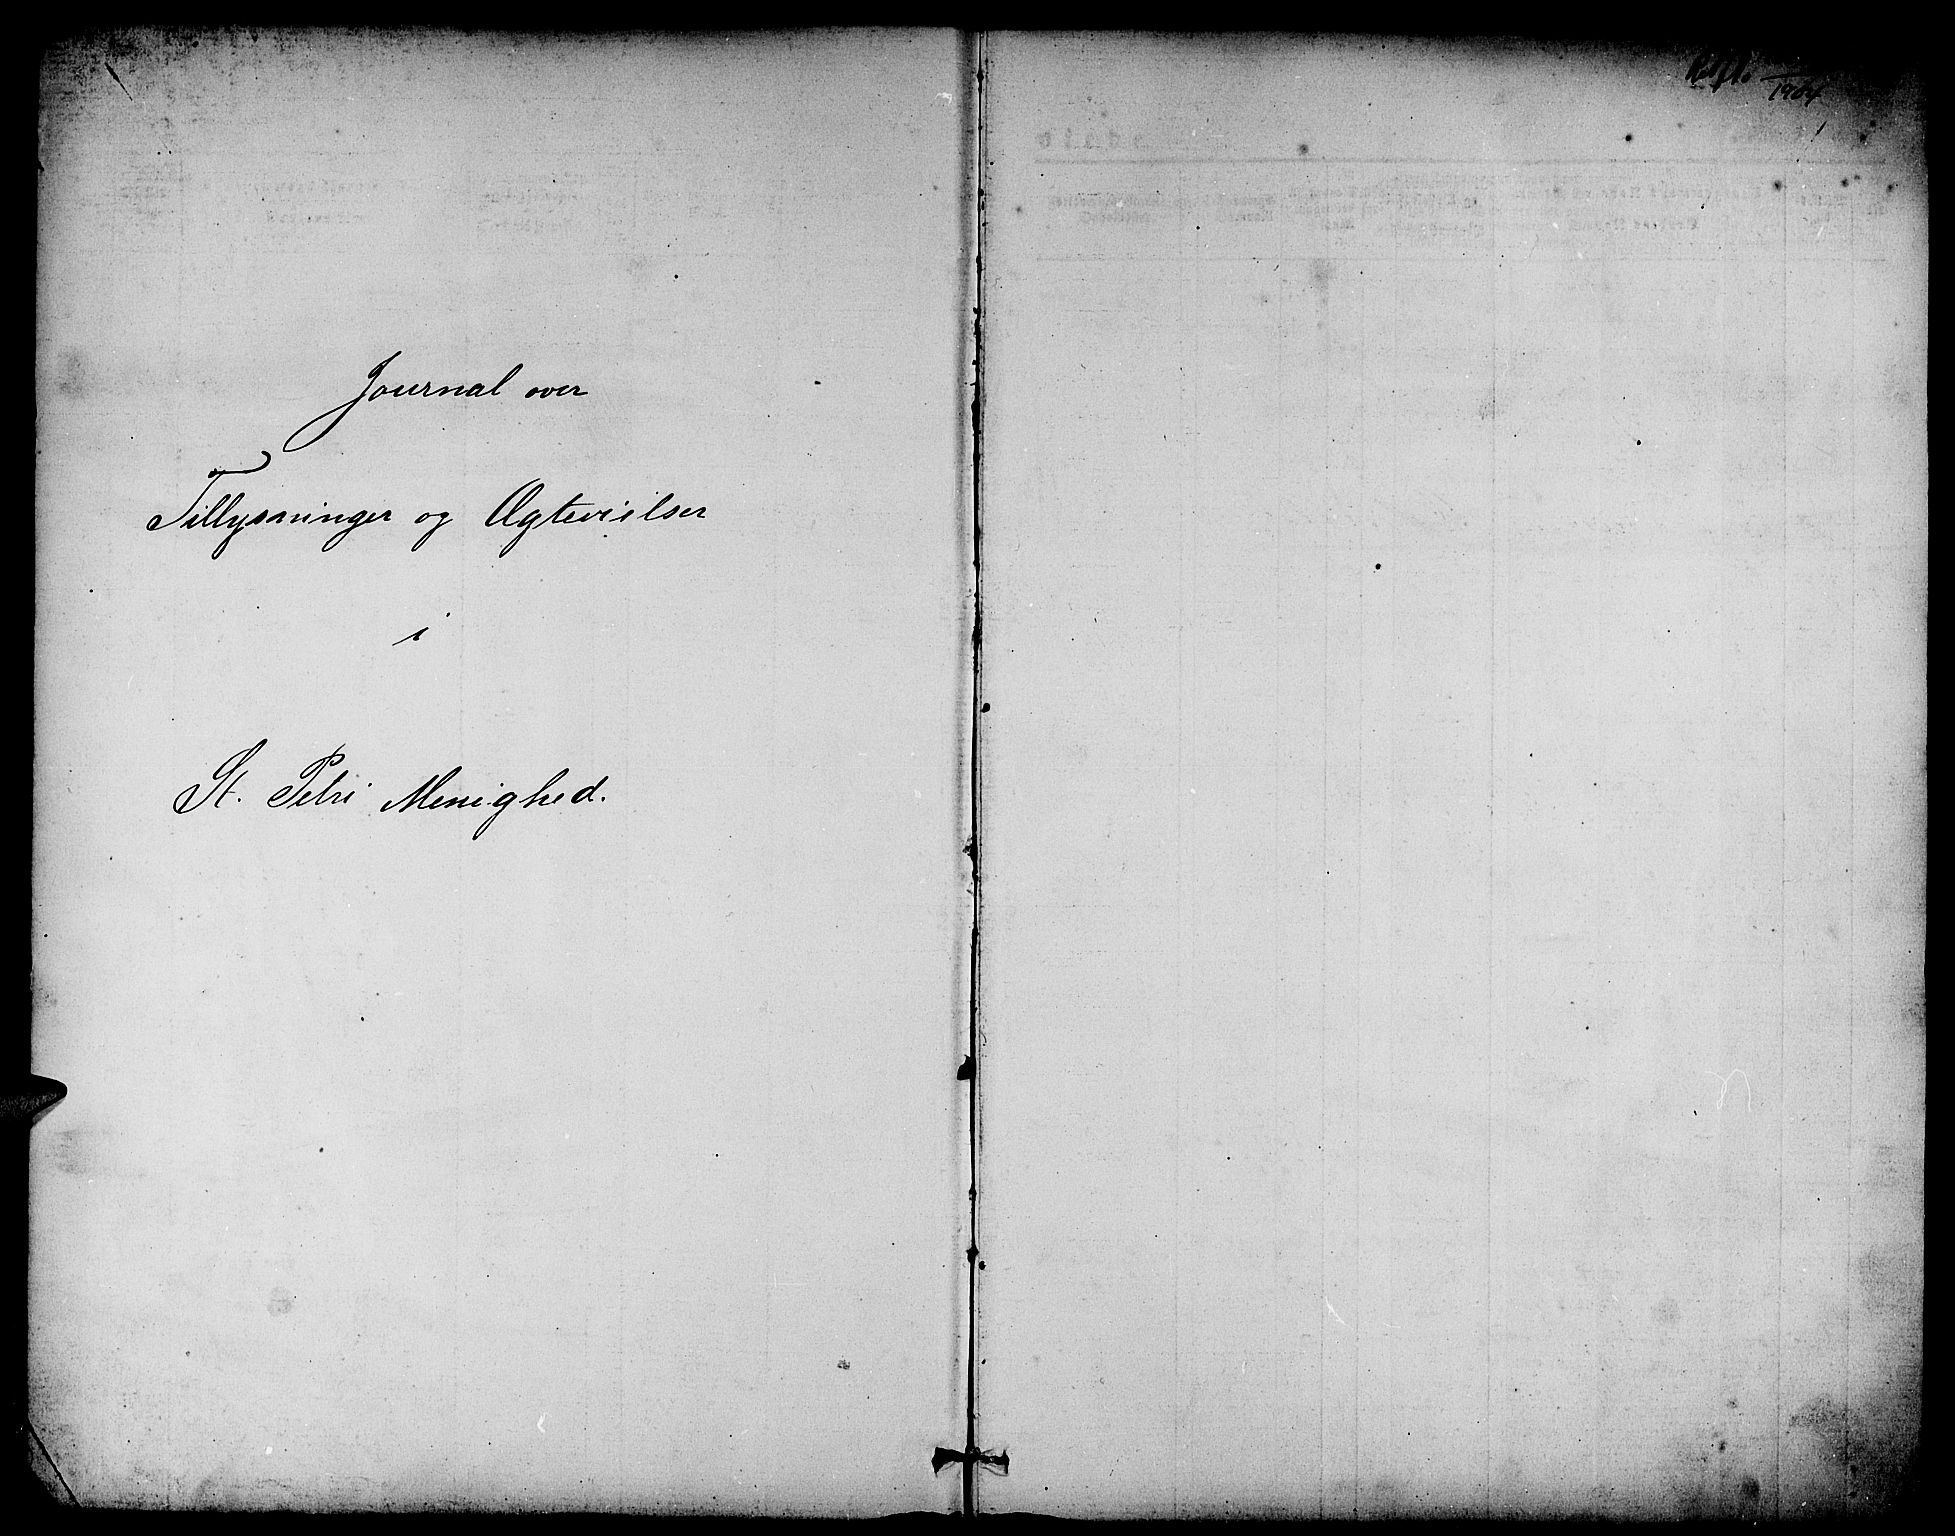 Journal over
Tillysninger og Ægtevielser
i
St. Petri Menighed.
1904